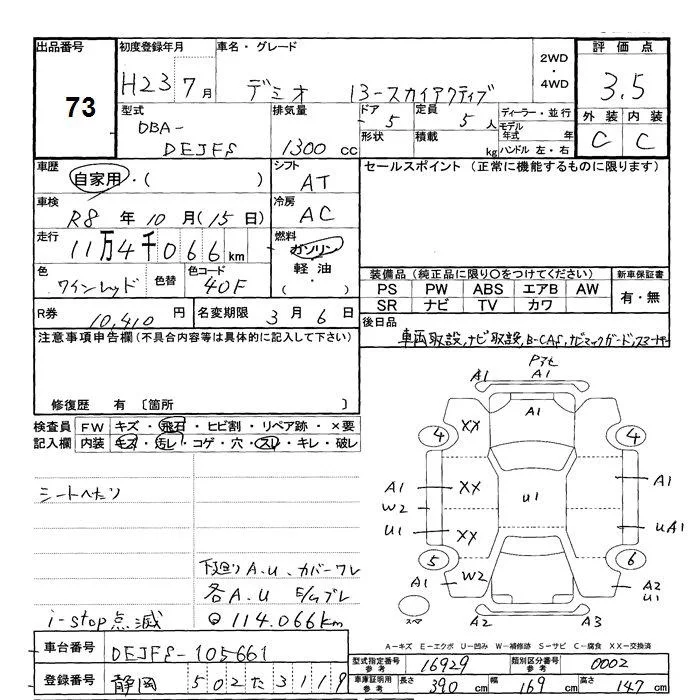 出品番号
73
初度登録年月
H23 7月
車名・グレード
デミオ 13-スカイアクティブ
2WD
・
4WD
評価点
3.5
外装 内装
C C
型式
DBA-
DEJFS
排気量
1300 cc
ドア 5
定員 5人
形状
積載 kg
ディーラー・並行
モデル年式 年
ハンドル 左・右
車歴
自家用・( )
シフト
AT
車検
R8年10月(15日)
冷房
AC
走行
11万4千066km
燃料
ガソリン
軽油
( ・ )
色
ワインレッド
色替
色コード
40F
セールスポイント (正常に機能するものに限ります)
装備品 (純正品に限り○をつけてください)
PS PW ABS エアB AW
SR ナビ TV カワ
新車保証書
有・無
R券 10,410円
名変期限 3月6日
後日品
車両取説,ナビ取説,B-CAS,
注意事項申告欄 (不具合内容等は具体的に記入して下さい)
修復歴 有 〔箇所 〕
検査員記入欄
FW キズ・飛石・ヒビ割・リペア跡・×要
内装 キズ・汚レ・コゲ・穴・スレ・キレ・破レ
シートへたり
下廻りA.U、カバーワレ
各A.U E/Gブレ
i-stop点滅
114.066km
Pアセ
A1 A1
A1
4 XX 4
A1 XX A1
W2 U1
U1 XX UA1
5 6
A1 W2 A2
U1
スマ A2 A3
A-キズ E-エクボ U-凹み W-補修跡 S-サビ C-腐食 XX-交換済
車台番号 DEJFS-105661
登録番号 静岡 502 た 3119
型式指定番号参考 16929
類別区分番号参考 0002
車庫証明用参考 長さ 390 cm 幅 169 cm 高さ 147 cm